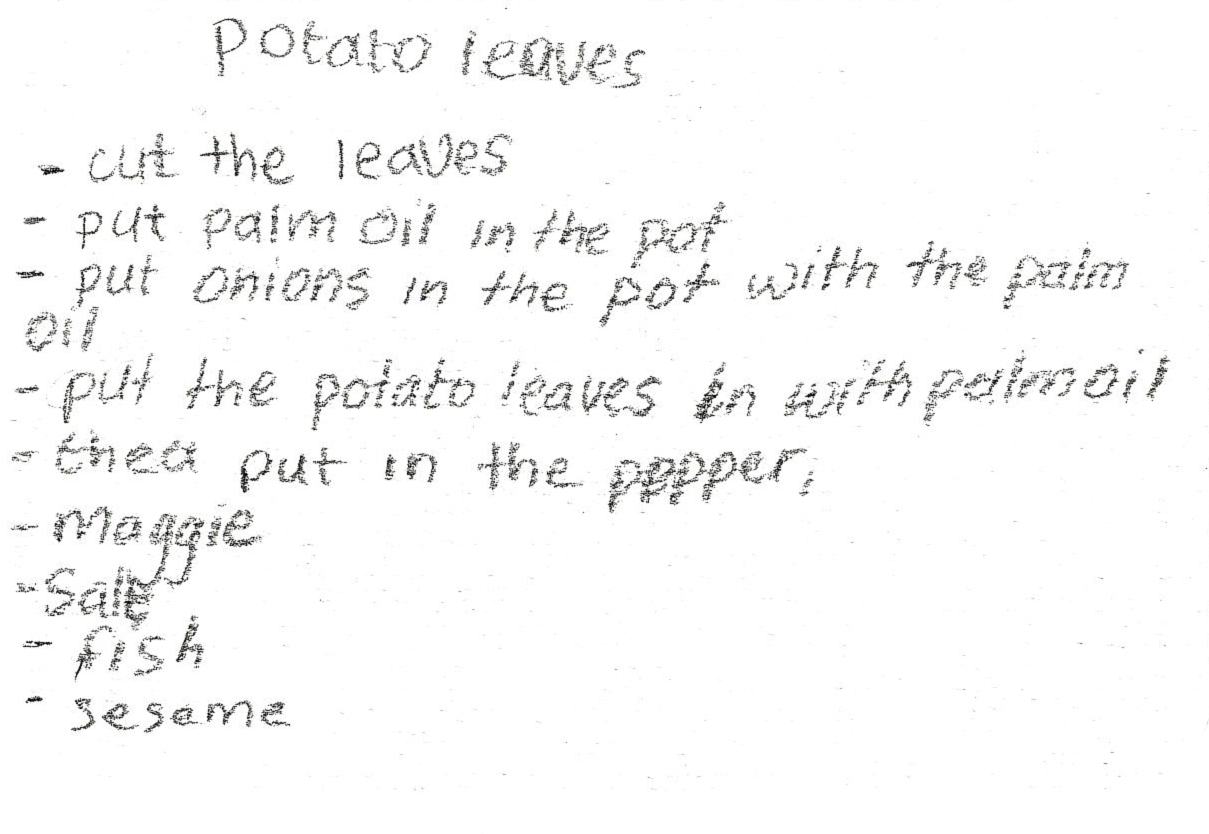 Potato leaves
- cut the leaves
- put palm oil in the pot
- put onions in the pot with the palm
oil
- put the potato leaves in with palm oil
- then put in the pepper,
- Maggie
- Salt
- fish
- sesame